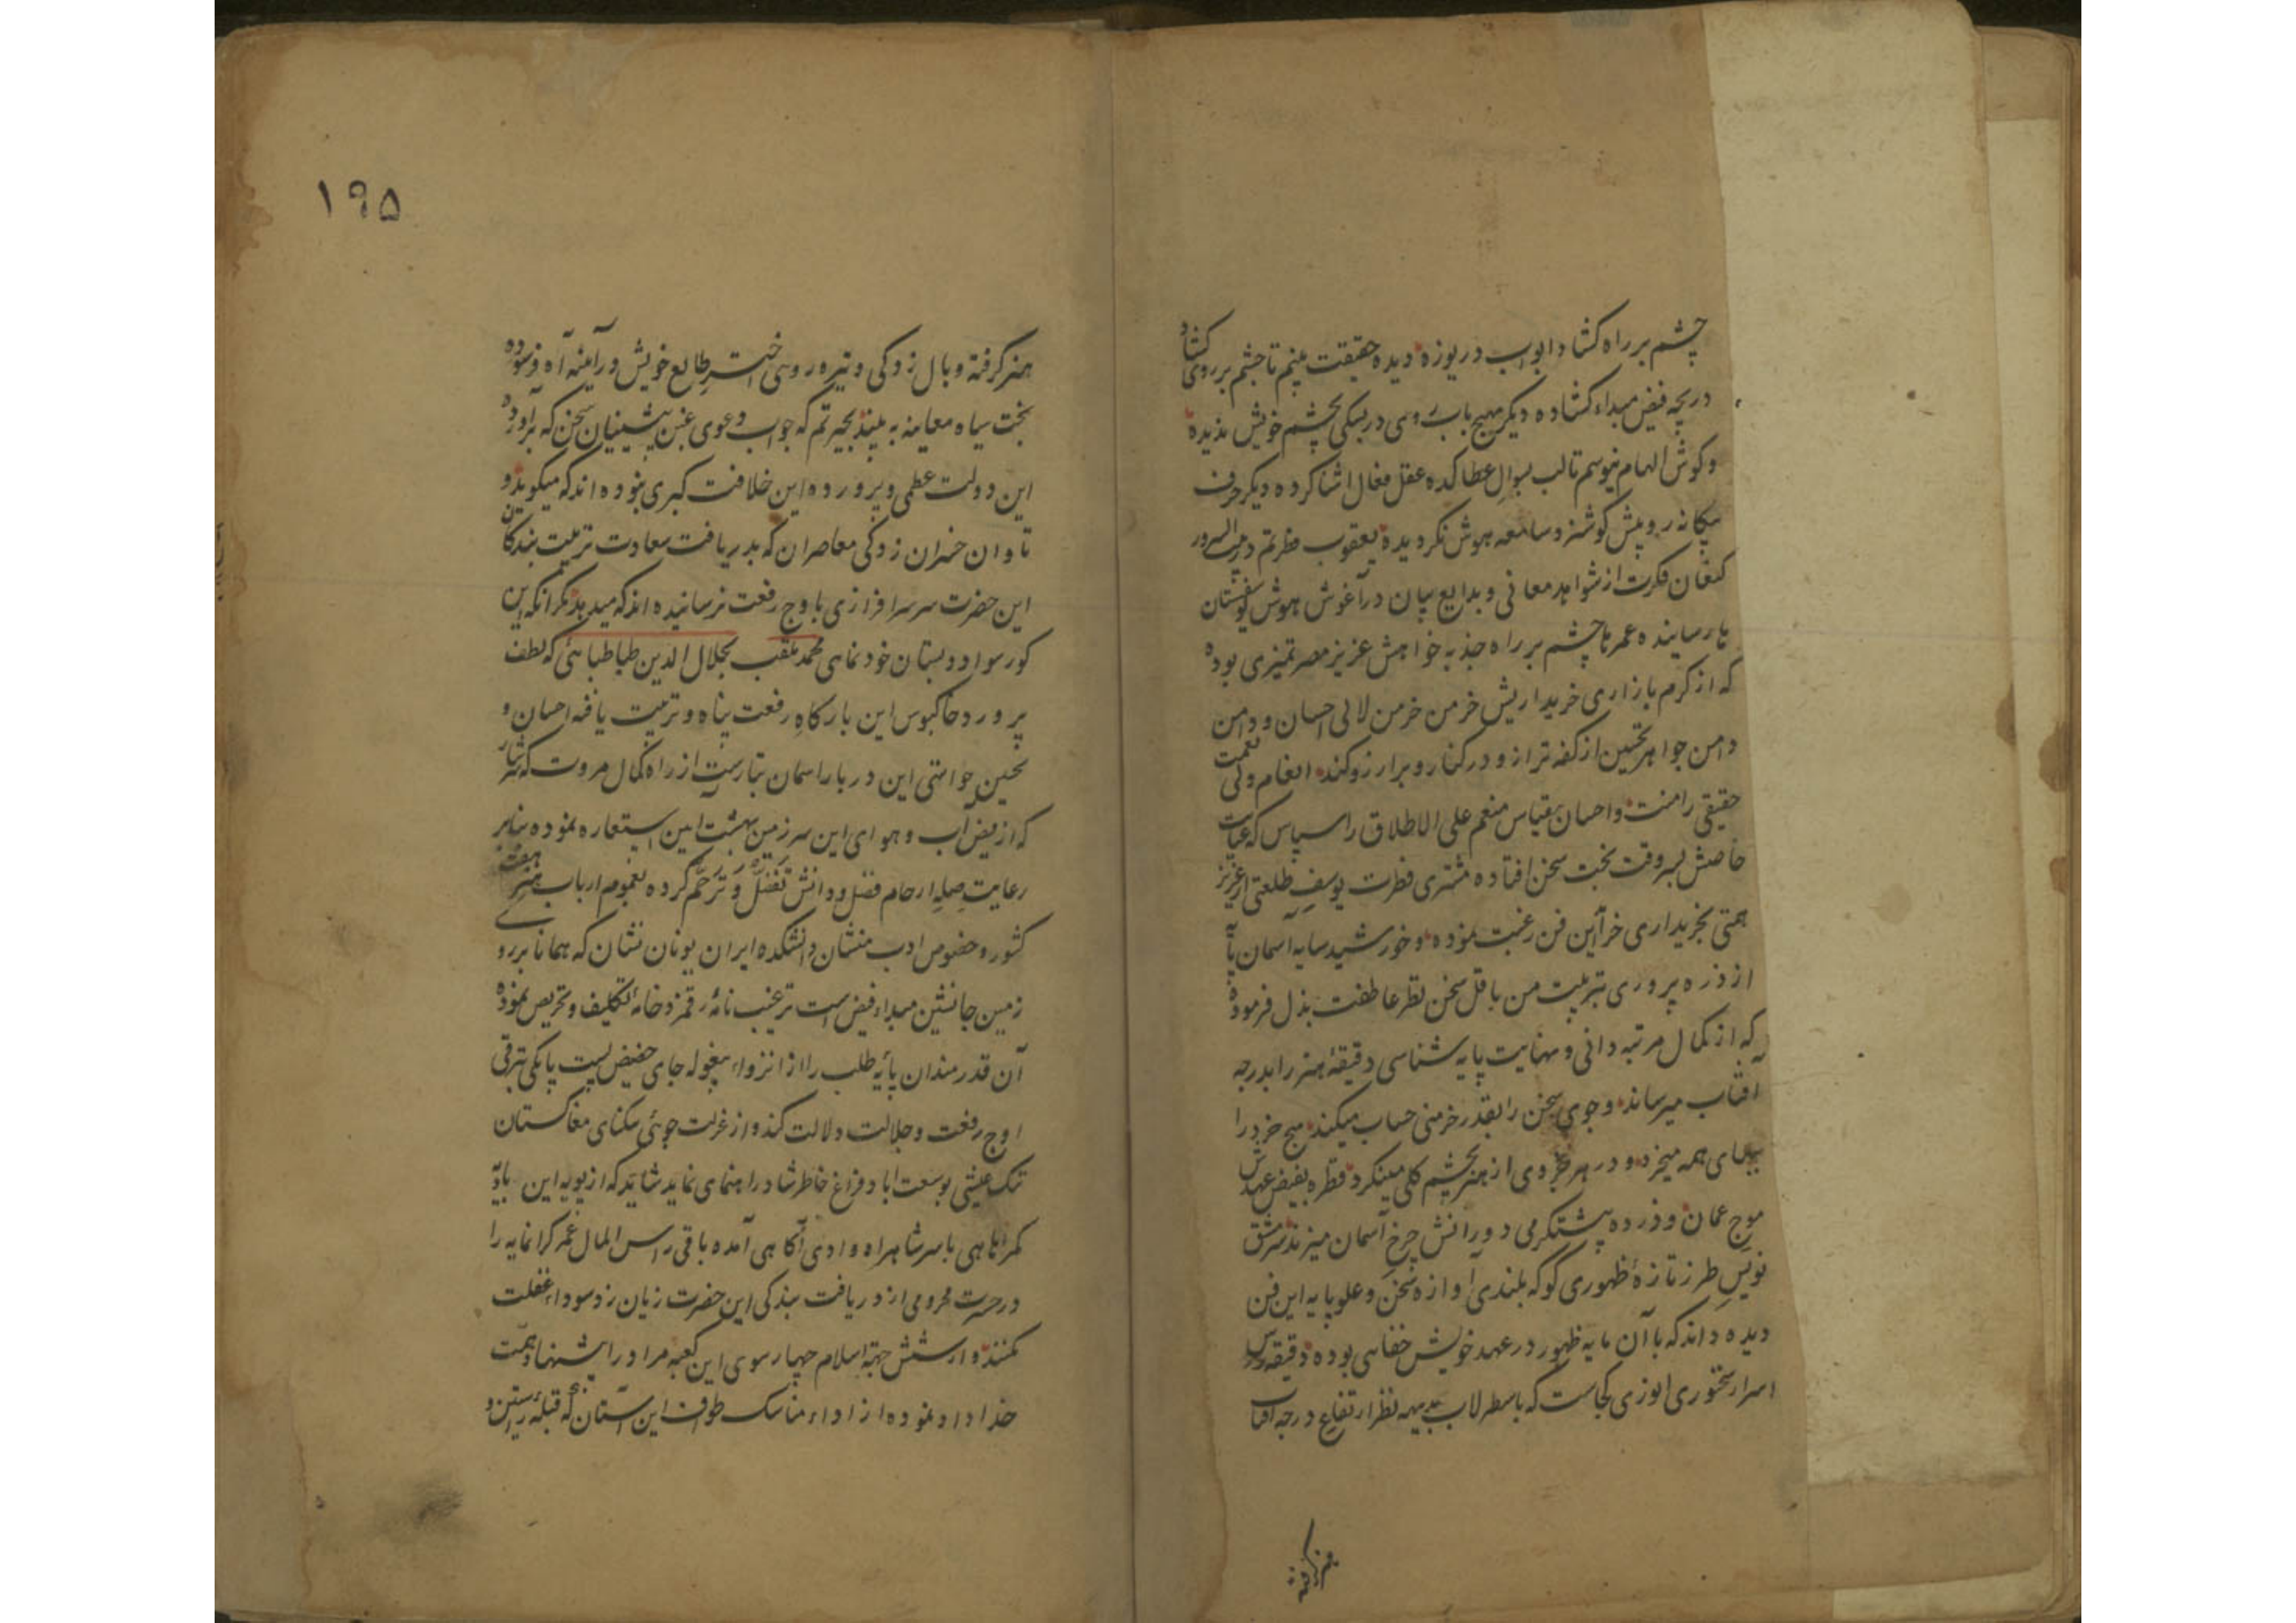 چشم بر راه کشاد ابواب دریوزه دیده حقیقت بینم تا چشم بر روی کشاد
دریچه فیض مبداء کشاده دیگر هیچ باب روی دربیکی بچشم خویش ندیده
و کوش الهام نیوسم تا لب بسوال عطا کده عقل فعال اشنا کرده دیگر حرف
بیکانه رو پیش کوشزد سامعه هوش نکردیده یعقوب فطرتم در بیت السرور
کنعان فکرت از شواهد معانی و بدایع بیان در آغوش هوش یوسفستان
بار رسانیده عمرها چشم بر راه جذبه خواهش عزیز مصر تمیزی بوده
که از کرم بازاری خریداریش خرمن خرمن لالی احسان و دامن
دامن جواهر تحسین از کفه ترازو در کنار و بر ارزو کند انعام ولی نعمت
حقیقی را منت و احسان بیقیاس منعم علی الاطلاق را سپاس که عنایت
خاصش بسر وقت بخت سخن افتاده مشتری فطرت یوسف طلعتی از عزیز
همتی بخریداری خرآین فن رغبت نموده و خورشید سایه آسمان پآ
از ذره پروری بتربیت من باقل سخن نظر عاطفت بذل فرموده
که از کمال مرتبه دانی و نهایت پایه شناسی دقیقهٔ هنر را بدرجه
آفتاب میرساند و جوی سخن را بقدر خرمنی حساب میکند هیچ خرد را
ببهای همه میخرد و در هر خردی از هنر بچشم کلی مینکرد قطره بفیض عهدش
موج عمان و ذرده پشتکرمی دورانش چرخ آسمان میزند سر مشق
نویس طرز تازهٔ ظهوری کو که بلندی آوازه سخن و علو پایه این فن
دیده داند که با آن مایه ظهور در عهد خویش خفاسی بوده دقیقه رس
اسرار سخنوری انوری کجاست که باسطرلاب بدیهه نظر ارتفاع درجه آفتاب
هنر کرفته
۱۹۵
هنر کرفته وبال زدکی و تیره روسی اختر طالع خویش در آینه آه فرسوده
بخت سیاه معاینه به بیند بحیرتم که جواب دعوی غبن پیشینیان سخن که برآورده
این دولت عظمی و پرورده این خلافت کبری نبوده اند که میکوید و
تاوان خسران زدکی معاصران که بدریافت سعادت تربیت بندکان
این حضرت سر سرافرازی باوج رفعت نرسانیده اند که میدهد مکر انکه این
کور سواد دبستان خودنمایی محمد ملقب بجلال الدین طباطبائی که لطف
پرورد خاکبوس این بارکاه رفعت پناه و تربیت یافته احسان و
تحسین جوایتی این دربار اسمان تبارست از راه کمال مروت که سرشار
که از فیض آب و هوای این سرزمین بهشت امین استعاره نموده بنابر
رعایت صلهٔ ارحام فضل و دانش تفضل و ترحم کرده بعموم ارباب هنر هفت
کشور و خصوص ادب منشان دانشکده ایران یونان نشان که همانا بر رو
زمین جانشین مبداء فیض است ترغیب نامه رقمزد خامهٔ تکلیف و تحریص نموده
آن قدرمندان پایه طلب را از انزواء بیغوله جای حضیض پست پایکی بترقی
اوج رفعت و جلالت دلالت کند و از غربت جوئی سکنای مغاکستان
تنک عیشی بوسعت اباد فراغ خاطر شاد راهنمای نماید شاید که از پویه این بادیه
کمراهی با سر شاهراه وادی آکاهی آمده باقی راس المال عمر کرانمایه را
در حسرت محرومی از دریافت بندکی این حضرت زیان زد سوداء غفلت
نکنند و از شش جهة اسلام چهار سوی این کعبه مراد را پیشنهاد همت
خداداد نموده از اداء مناسک طواف این آستان که قبلهٔ راستین و